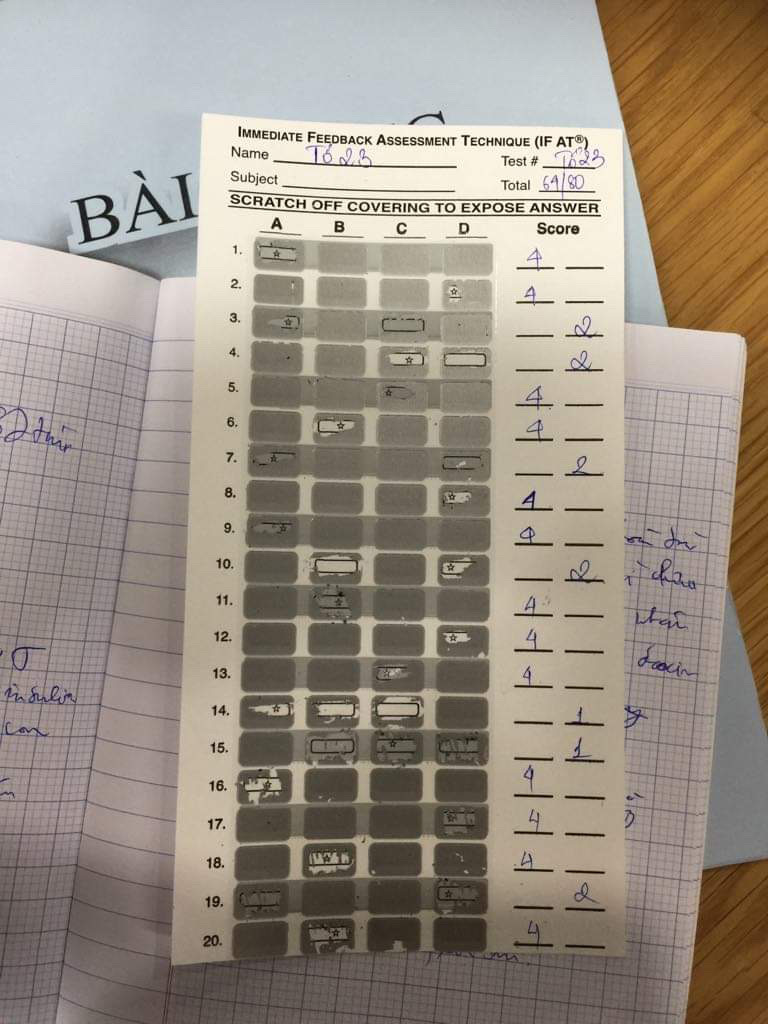 BÀI
IMMEDIATE FEEDBACK ASSESSMENT TECHNIQUE (IF AT®)
Name Tổ 23 Test # Tổ 23
Subject Total 64/80
SCRATCH OFF COVERING TO EXPOSE ANSWER
A B C D Score
1. 4
2. 4
3. 2
4. 2
5. 4
6. 4
7. 2
8. 4
9. 4
10. 2
11. 4
12. 4
13. 4
14. 1
15. 1
16. 4
17. 4
18. 4
19. 2
20. 4
insulin